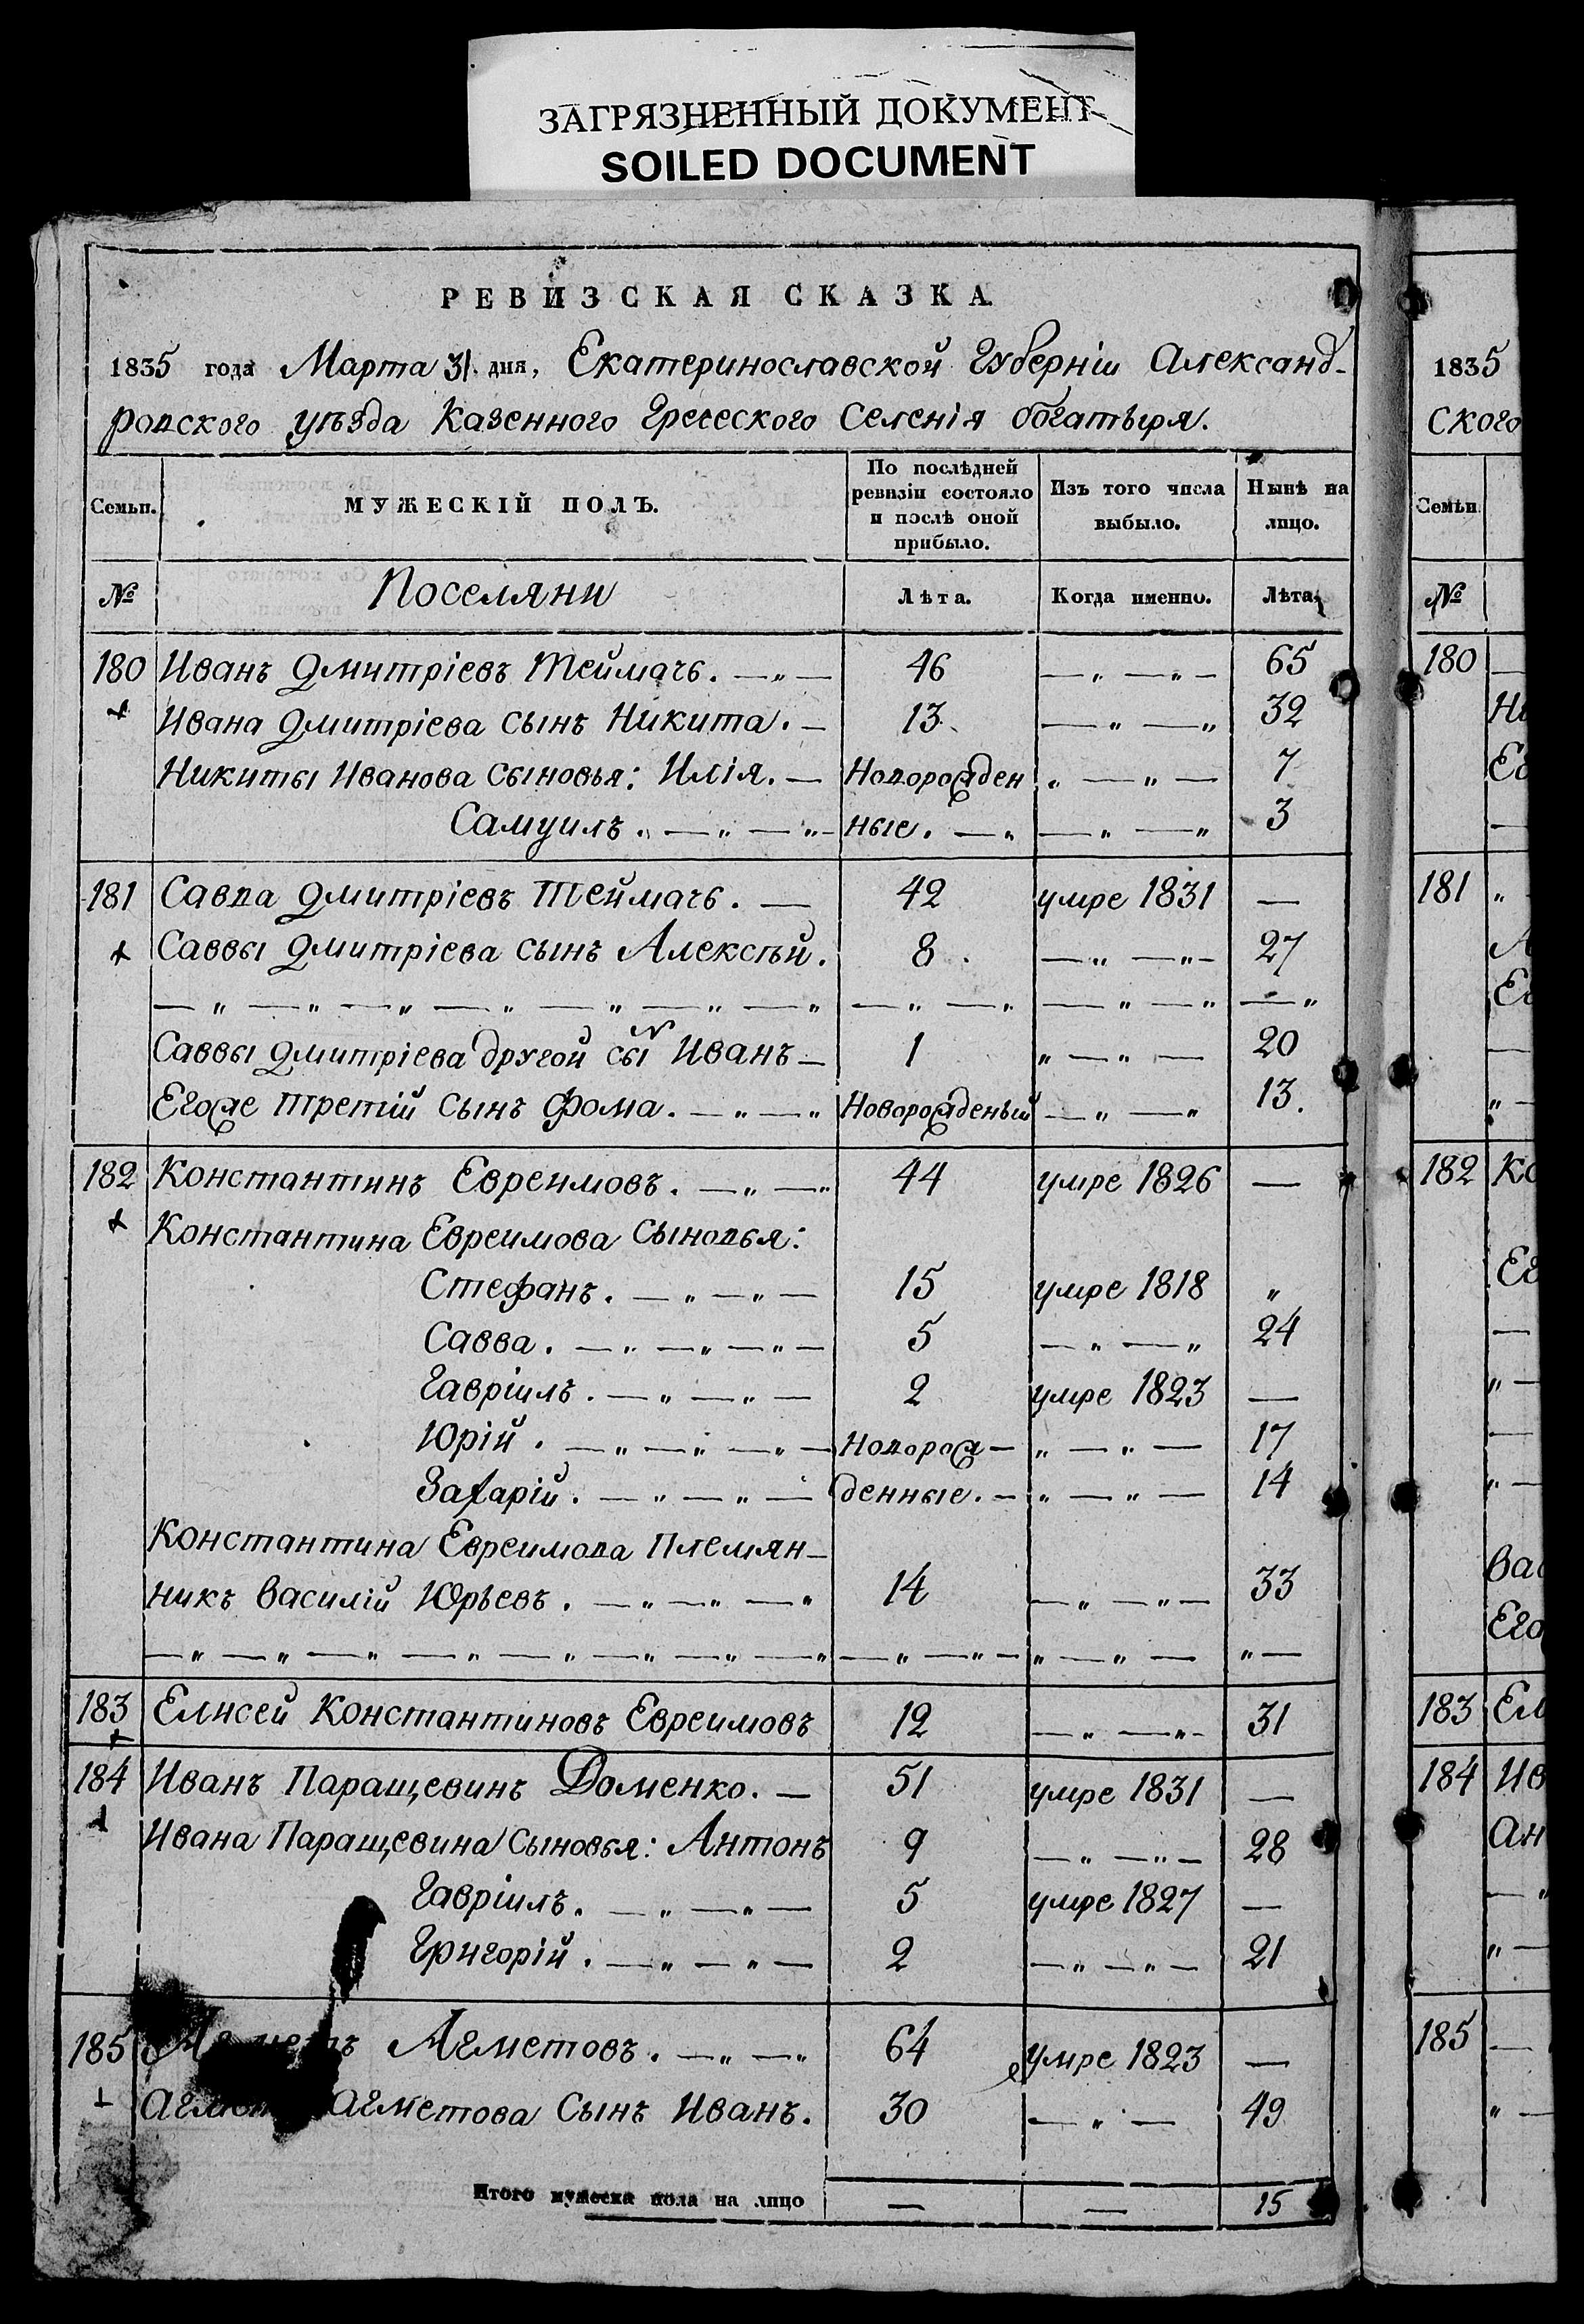 ЗАГРЯЗНЕННЫЙ ДОКУМЕНТ
SOILED DOCUMENT
РЕВИЗСКАЯ СКАЗКА
1835 года Марта 31. дня, Екатеринославской Губерніи Александ-
ровского уѣзда Казенного Греческого Селенія Богатыря.
Семьи. МУЖЕСКІЙ ПОЛЪ. По послѣдней ревизіи состояло и послѣ оной прибыло. Изъ того числа выбыло. Нынѣ на лицо.
№ Поселяни Лѣта. Когда именно. Лѣта.
180 Иванъ Дмитріевъ Теймачь. — „ — 46 — „ — „ — 65
Ивана Дмитріева сынъ Никита. — 13 — „ — „ 32
Никиты Иванова Сыновья: Илія. — Новорожден „ — „ — 7
Самуилъ. „ — „ — „ — ные. — „ — „ — „ 3
181 Савва Дмитріевъ Теймачь. — 42 умре 1831 —
Саввы Дмитріева сынъ Алексѣй. 8 — „ — „ — 27
— „ — „ — „ — „ — „ — „ — „ — „ — „ — „ — „ — „
Саввы Дмитріева другой сын Иванъ — 1 „ — „ — 20
Егоже третій сынъ Фома. — „ — „ Новорожденый — „ — „ 13.
182 Константинъ Евреимовъ. — „ — „ 44 умре 1826 —
Константина Евреимова сыновья:
Стефанъ. — „ — „ — 15 умре 1818 „
Савва. — „ — „ — „ — 5 — „ — „ 24
Гавріилъ. — „ — „ — 2 умре 1823 —
Юрій. — „ — „ — „ —Новорож- „ — „ — 17
Захарій. — „ — „ — денные. — „ — „ — 14
Константина Евреимова Племян-
никъ Василій Юрьевъ. — „ — „ — „ 14 — „ — „ — 33
— „ — „ — „ — „ — „ — „ — „ — „ — „ — „ — „ — „ — „ —
183 Елисей Константиновъ Евреимовъ 12 — „ — „ — 31
184 Иванъ Паращевинъ Доменко. — 51 умре 1831 —
Ивана Паращевина Сыновья: Антонъ 9 — „ — „ — 28
Гавріилъ. — „ — „ — 5 умре 1827 —
Григорій. — „ — „ — 2 — „ — „ — 21
185 Агметовъ. — „ — „ 64 умре 1823 —
Агметова Сынъ Иванъ. 30 — „ — 49
Итого мужеска пола на лицо — — 15
1835
ского
Семьи.
№
180
181
182
183
184
185